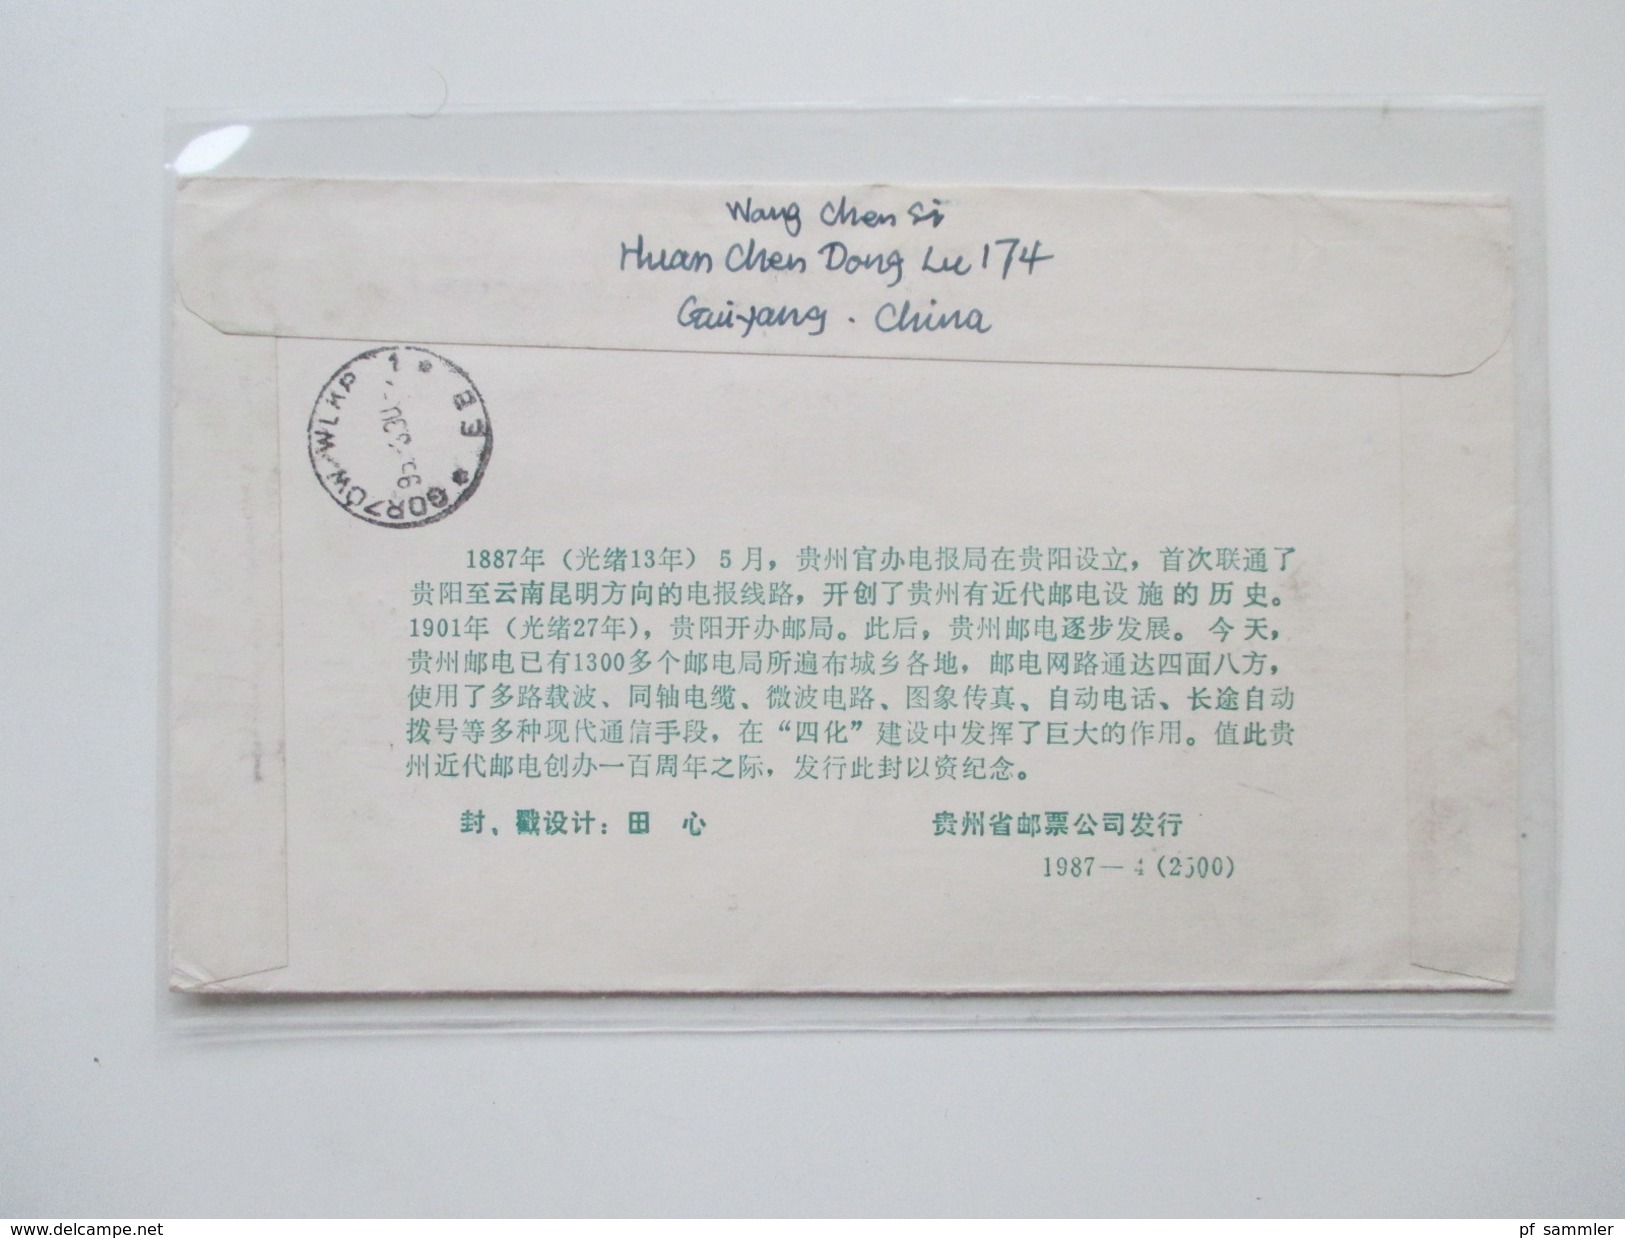 Wang Chen Si
Huan Chen Dong Lu 174
Guiyang . China
GORZÓW WLKP 1 * BE *
1887年（光绪13年）5月，贵州官办电报局在贵阳设立，首次联通了
贵阳至云南昆明方向的电报线路，开创了贵州有近代邮电设施的历史。
1901年（光绪27年），贵阳开办邮局。此后，贵州邮电逐步发展。今天，
贵州邮电已有1300多个邮电局所遍布城乡各地，邮电网路通达四面八方，
使用了多路载波、同轴电缆、微波电路、图象传真、自动电话、长途自动
拨号等多种现代通信手段，在“四化”建设中发挥了巨大的作用。值此贵
州近代邮电创办一百周年之际，发行此封以资纪念。
封、戳设计：田 心
贵州省邮票公司发行
1987—4(2500)
www.delcampe.net
pf_sammler